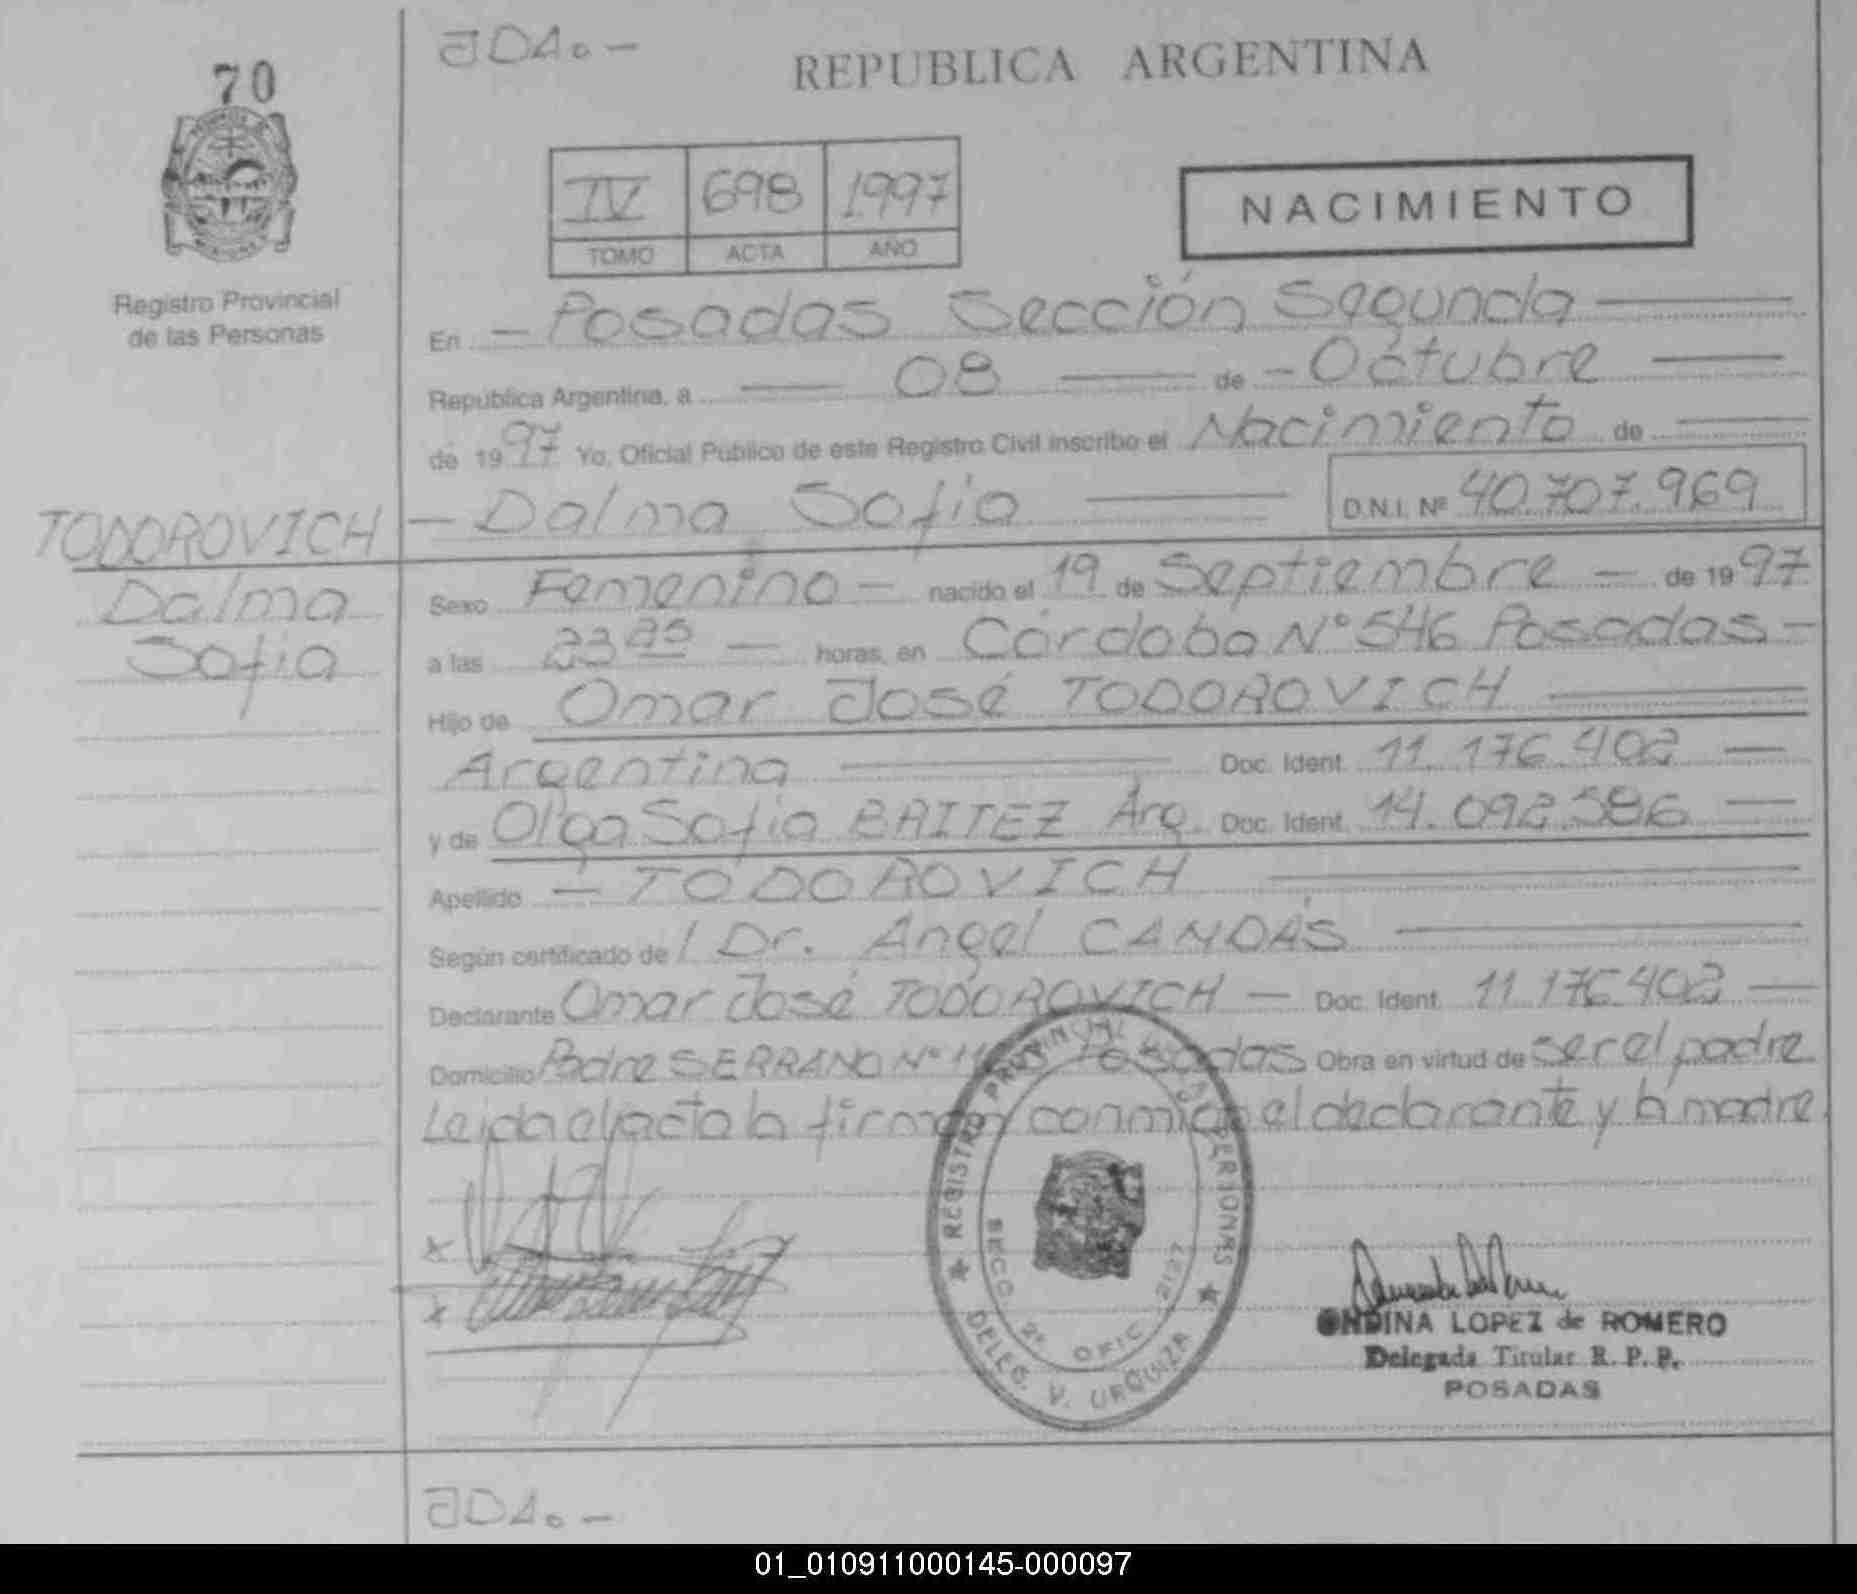 70
JDA.-
REPUBLICA ARGENTINA
IV 698 1997
TOMO ACTA AÑO
NACIMIENTO
Registro Provincial
de las Personas
En - Posadas Sección Segunda
República Argentina, a 08 de - Octubre
de 1997 Yo, Oficial Público de este Registro Civil inscribo el Nacimiento de
TODOROVICH - Dalma Sofia D.N.I. Nº 40.707.969
Dalma
Sofia
Sexo Femenino - nacido el 19 de Septiembre - de 1997
a las 23 - horas, en Córdoba Nº 546 Posadas -
Hijo de Omar José TODOROVICH
Argentina Doc. Ident. 11.176.402 -
y de Olga Sofia BRITEZ Arg. Doc. Ident. 14.092.586 -
Apellido - TODOROVICH
Según certificado de / Dr. Angel CANDÁS
Declarante Omar José TODOROVICH - Doc. Ident. 11.176.402 -
Domicilio Padre SERRANO Nº Posadas Obra en virtud de ser el padre
Leida el acta la firman conmigo el declarante y la madre.
REGISTRO PROVINCIAL DE LAS PERSONAS
SECC 2ª OFIC 2127
DELEG. V. URQUIZA
x
x
ONDINA LOPEZ de ROMERO
Delegada Titular R. P. P.
POSADAS
JDA.-
01_010911000145-000097